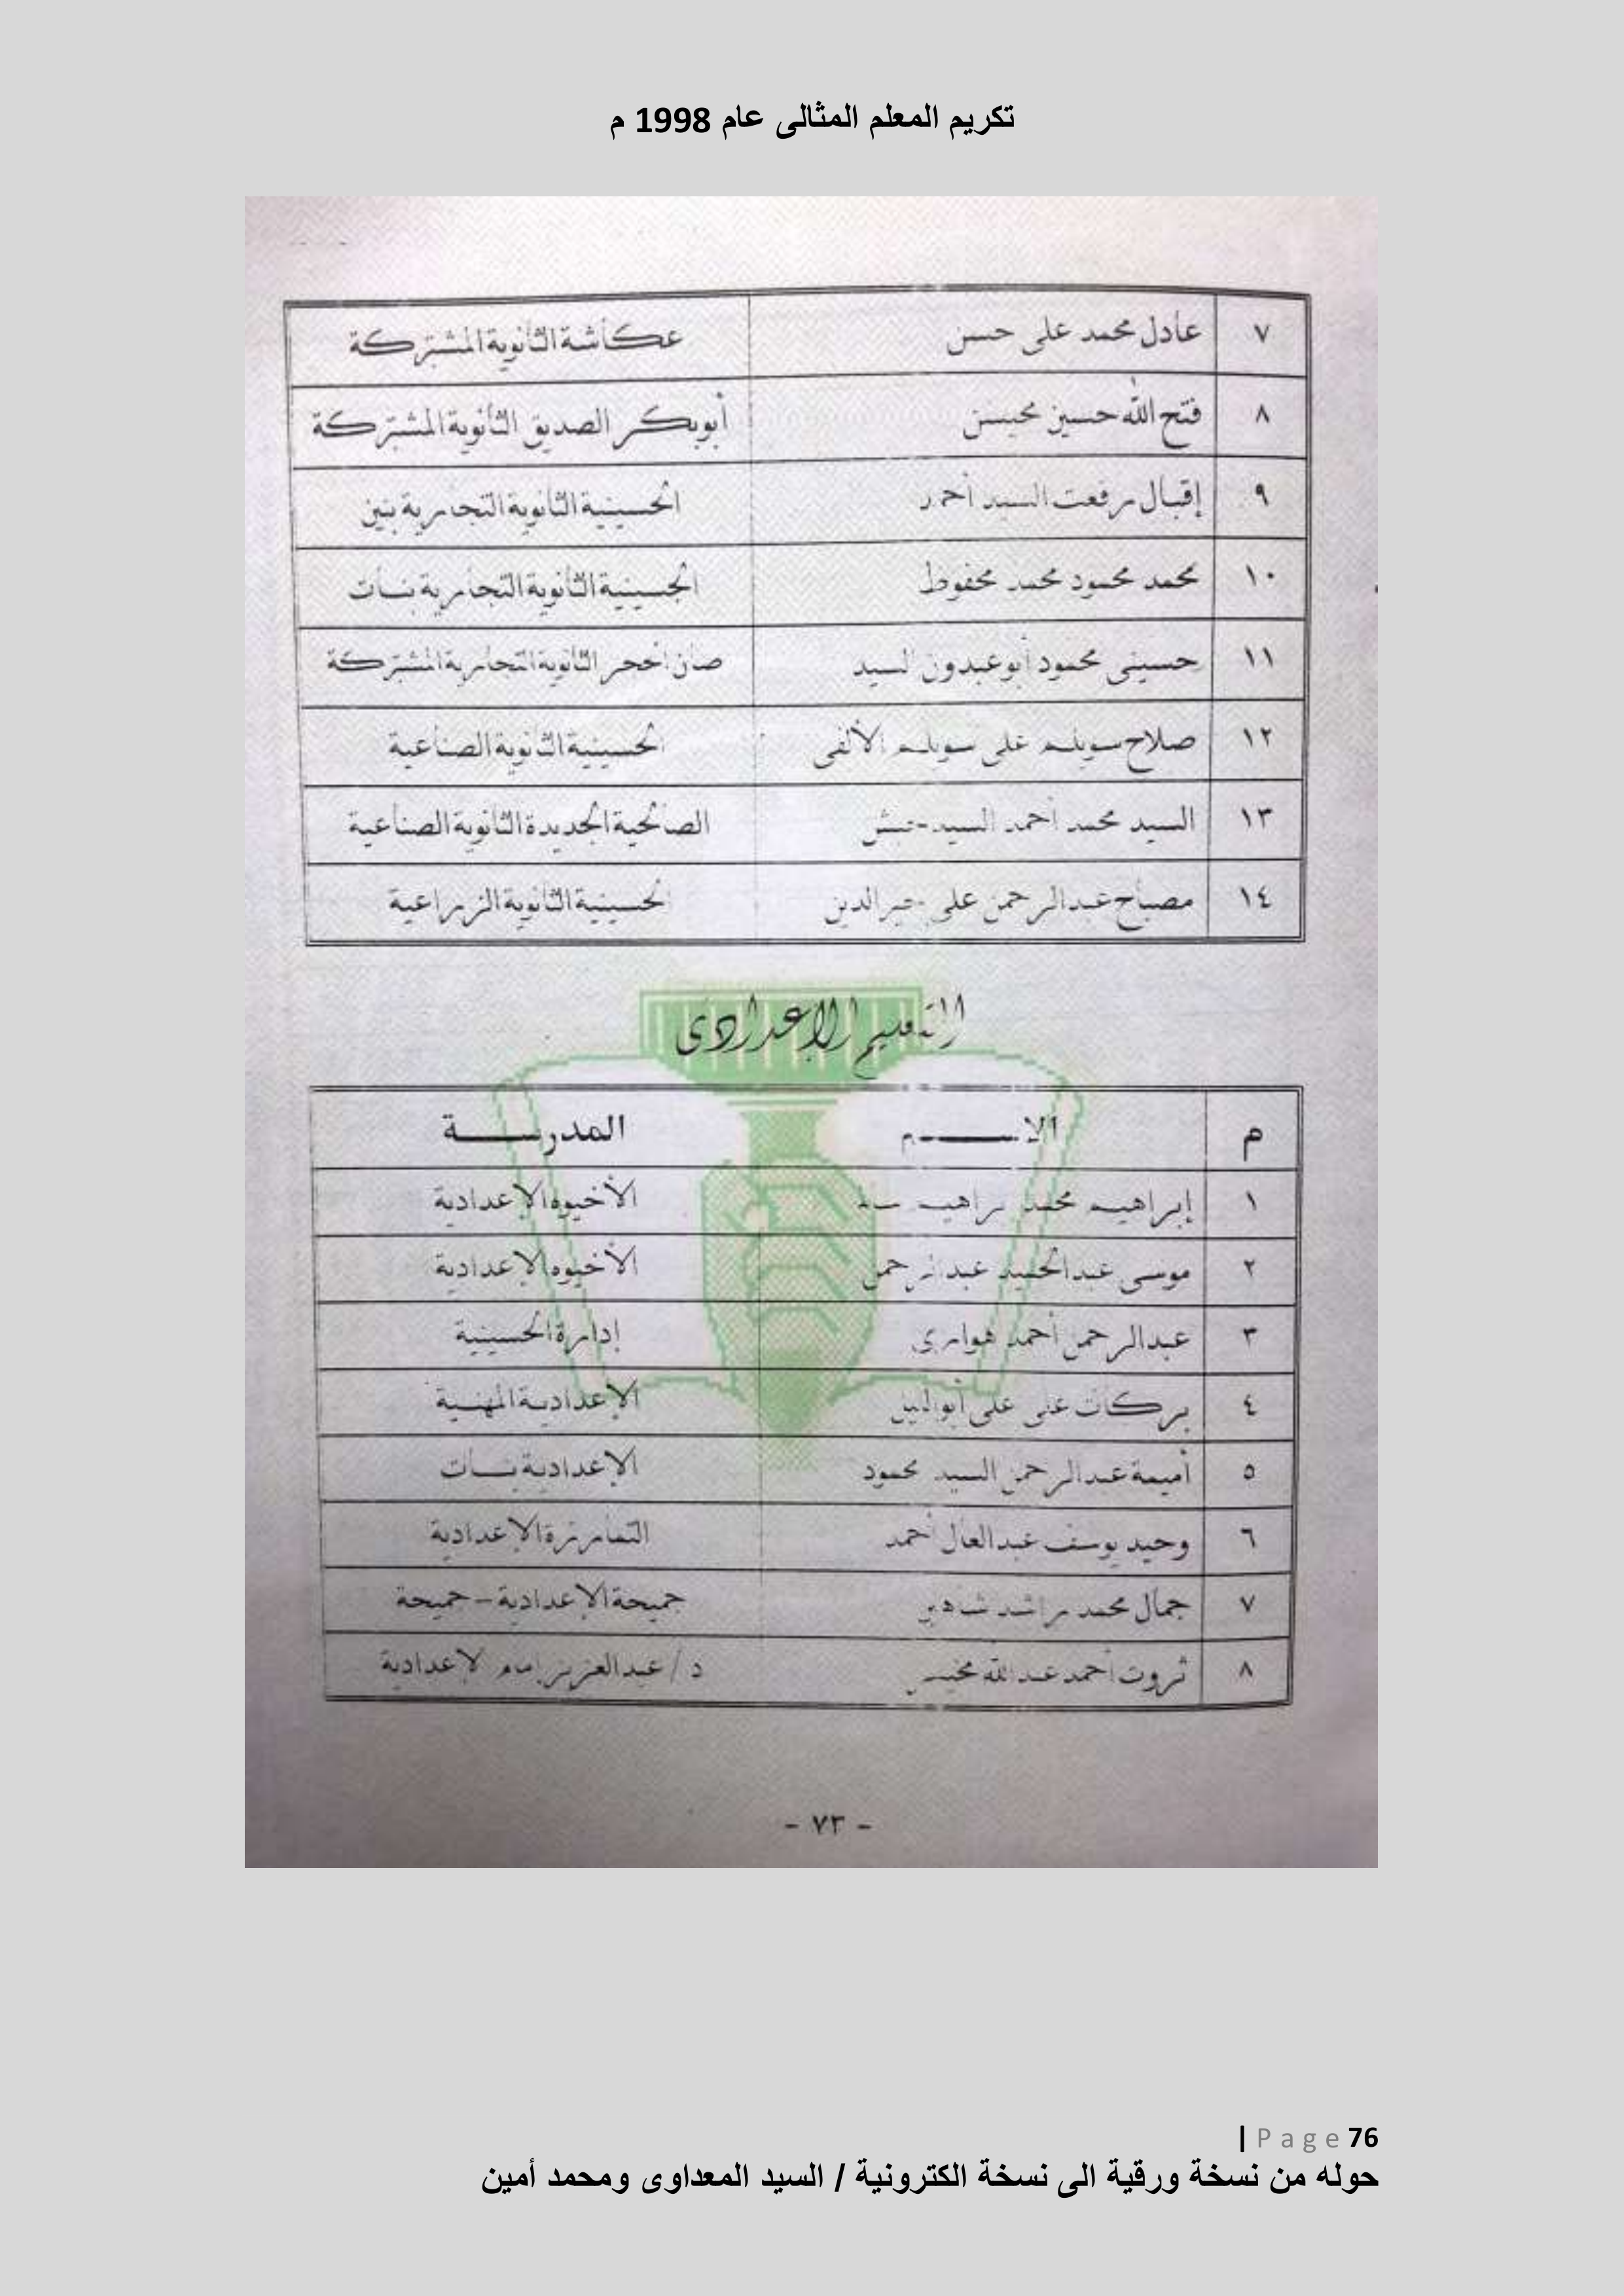 تكريم المعلم المثالى عام 1998 م
٧ عادل محمد على حسن عكاشة الثانوية المشتركة
٨ فتح الله حسين محيسن أبوبكر الصديق الثانوية المشتركة
٩ إقبال رفعت السيد أحمد الحسينية الثانوية التجارية بنين
١٠ محمد محمود محمد محفوظ الحسينية الثانوية التجارية بنات
١١ حسينى محمود أبوعبدون السيد صان الحجر الثانوية التجارية المشتركة
١٢ صلاح سويلم على سويلم الألفى الحسينية الثانوية الصناعية
١٣ السيد محمد أحمد السيد الصالحية الجديدة الثانوية الصناعية
١٤ مصباح عبدالرحمن على خيرالدين الحسينية الثانوية الزراعية
التعليم الإعدادى
م الاسم المدرسة
١ إبراهيم محمد إبراهيم الأخيوه الإعدادية
٢ موسى عبدالحميد عبدالرحمن الأخيوه الإعدادية
٣ عبدالرحمن أحمد هوارى إدارة الحسينية
٤ بركات على على أبوالليل الإعدادية المهنية
٥ أميمة عبدالرحمن السيد محمود الإعدادية بنات
٦ وحيد يوسف عبدالعال أحمد التمارزة الإعدادية
٧ جمال محمد راشد شاهين جميحة الإعدادية - جميحة
٨ ثروت أحمد عبدالله د / عبدالعزيز إمام الإعدادية
- ٧٣ -
76 Page |
حوله من نسخة ورقية الى نسخة الكترونية / السيد المعداوى ومحمد أمين